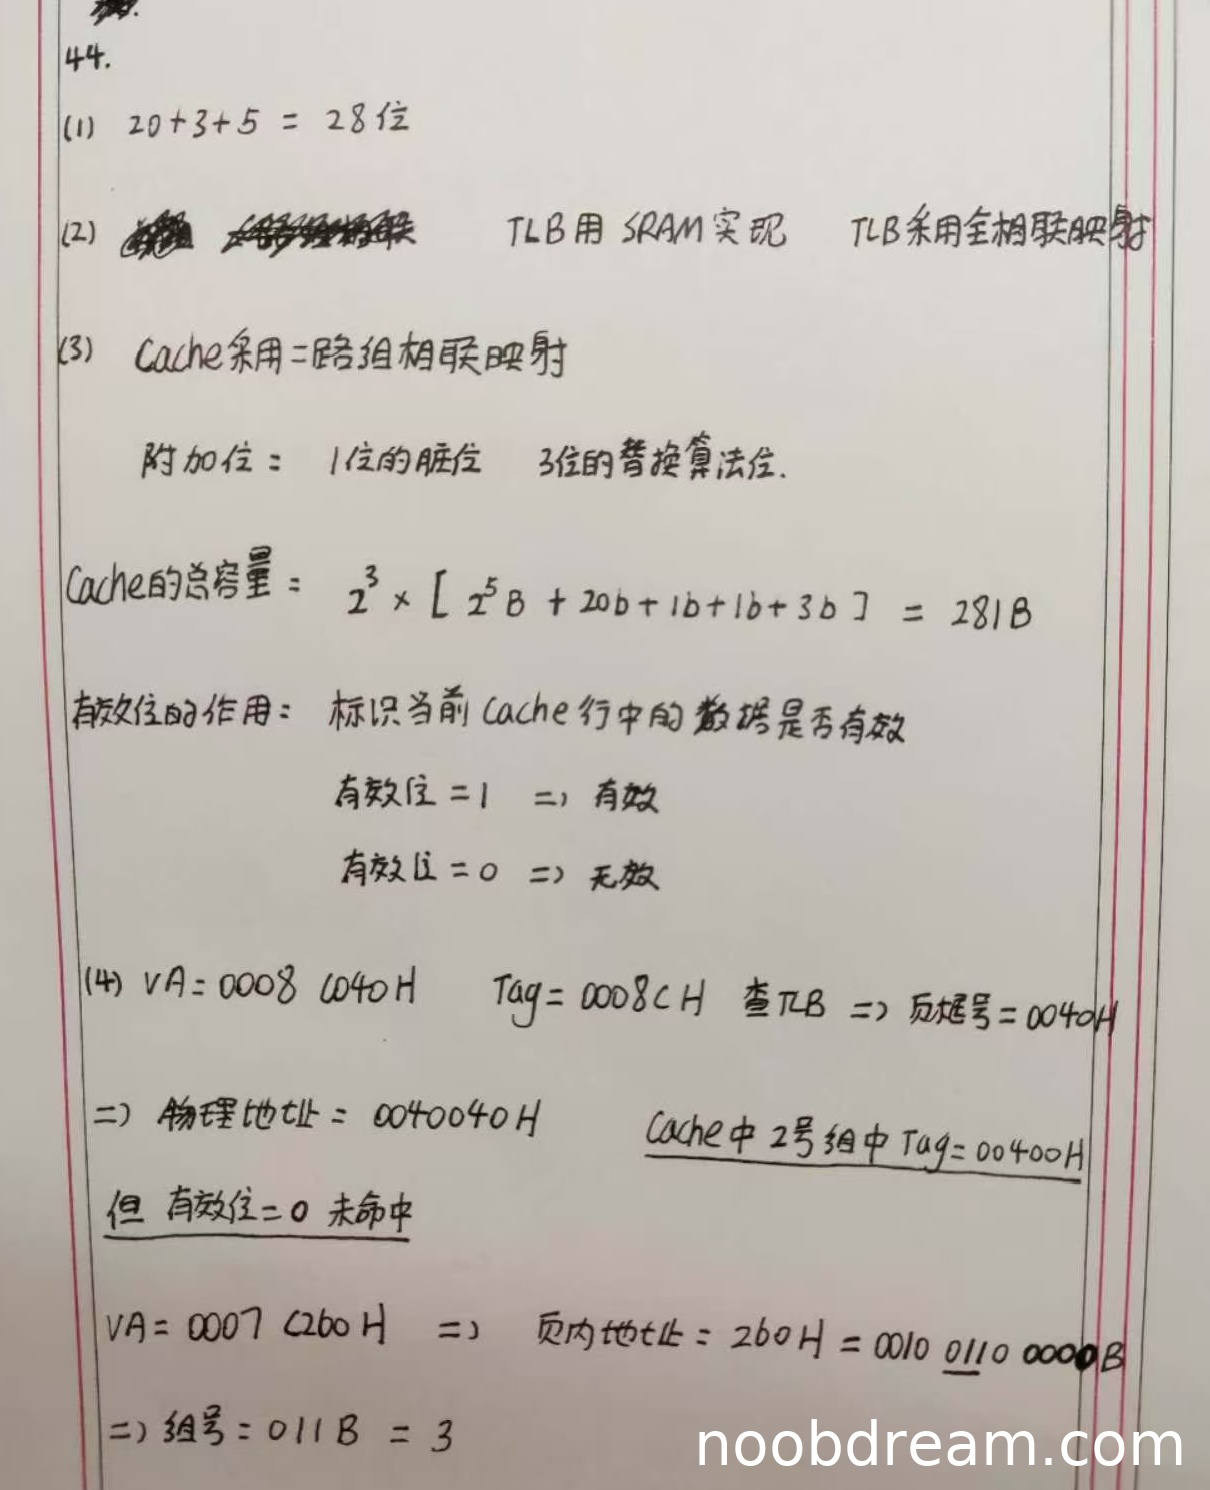 44.
(1) 20+3+5 = 28位
(2) TLB用SRAM实现 TLB采用全相联映射
(3) Cache采用二路组相联映射
附加位: 1位的脏位 3位的替换算法位.
Cache的总容量: 2³ × [ 2⁵B + 20b + 1b + 1b + 3b ] = 281B
有效位的作用: 标识当前Cache行中的数据是否有效
有效位 = 1 => 有效
有效位 = 0 => 无效
(4) VA = 0008 C040H Tag = 0008CH 查TLB => 页框号 = 0040H
=> 物理地址 = 0040040H Cache中2号组中Tag = 00400H
但 有效位 = 0 未命中
VA = 0007 C260H => 页内地址 = 260H = 0010 0110 0000B
=> 组号 = 011B = 3
noobdream.com